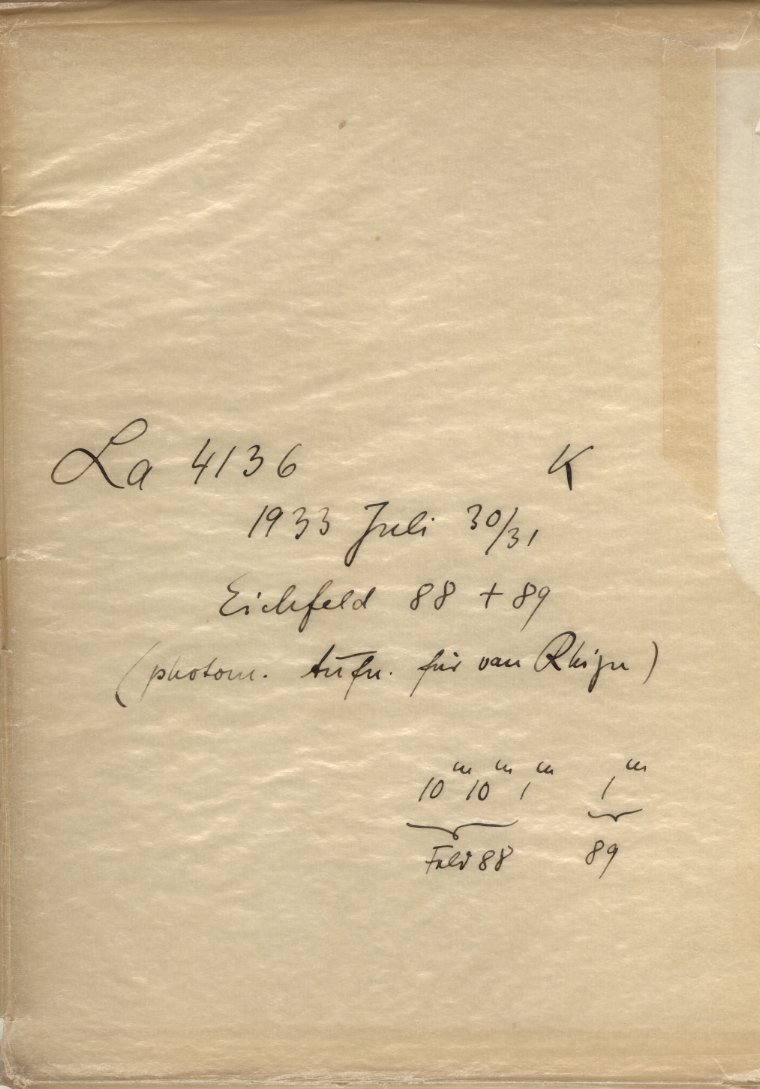 La 4136 K
1933 Juli 30/31
Eichfeld 88 + 89
(photom. Aufn. für van Rhijn)
10ᵐ 10ᵐ 1ᵐ 1ᵐ
Feld 88 89